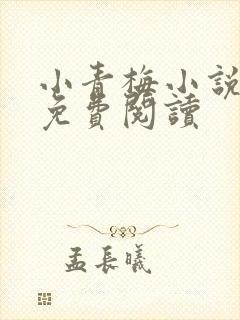 小青梅小説
免費閱讀
孟長曦